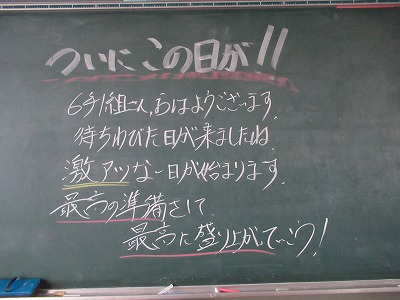 ついにこの日が!!
6年1組さん、おはようございます。
待ちわびた日が来ましたね。
激アツな一日が始まります。
最高の準備をして
最高に盛り上がっていこう!